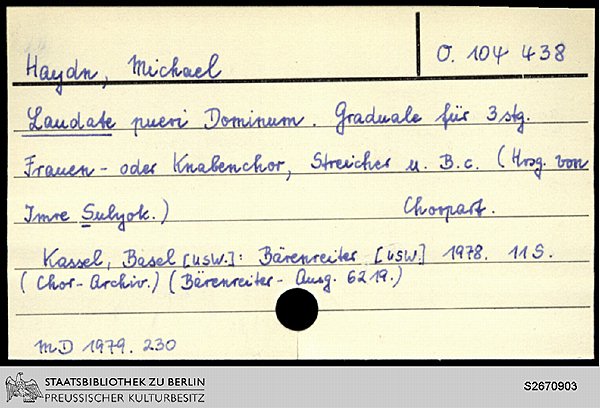 Haydn, Michael
O. 104 438
Laudate pueri Dominum. Graduale für 3stg.
Frauen- oder Knabenchor, Streicher u. B.c. (Hrsg. von
Imre Sulyok.) Chorpart.
Kassel, Basel [usw.]: Bärenreiter [usw.] 1978. 11 S.
(Chor-Archiv.) (Bärenreiter-Ausg. 6219.)
MD 1979. 230
STAATSBIBLIOTHEK ZU BERLIN
PREUSSISCHER KULTURBESITZ
S2670903